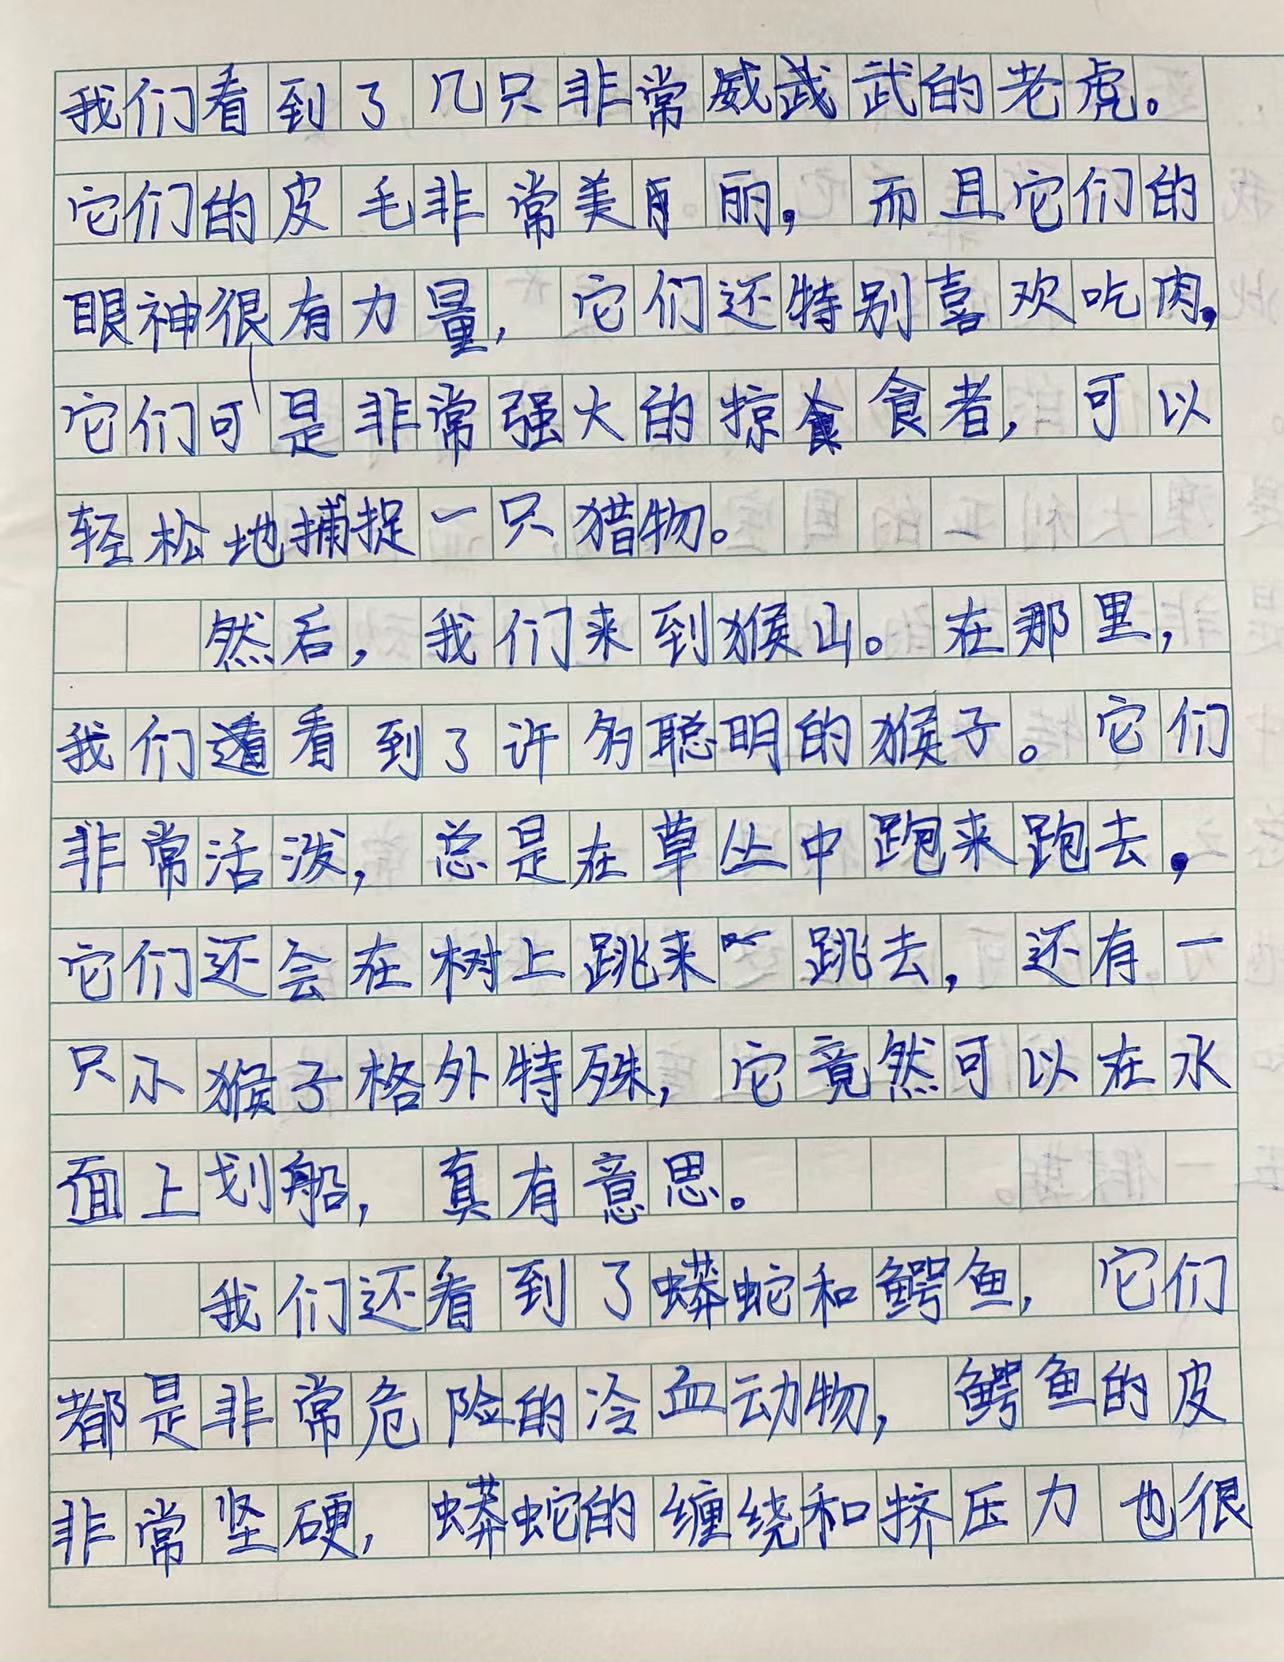 我们看到了几只非常威武武的老虎。
它们的皮毛非常美丽，而且它们的
眼神很有力量，它们还特别喜欢吃肉，
它们可是非常强大的掠食食者，可以
轻松地捕捉一只猎物。
然后，我们来到猴山。在那里，
我们看到了许多聪明的猴子。它们
非常活泼，总是在草丛中跑来跑去，
它们还会在树上跳来跳去，还有一
只小猴子格外特殊，它竟然可以在水
面上划船，真有意思。
我们还看到了蟒蛇和鳄鱼，它们
都是非常危险的冷血动物，鳄鱼的皮
非常坚硬，蟒蛇的缠绕和挤压力也很